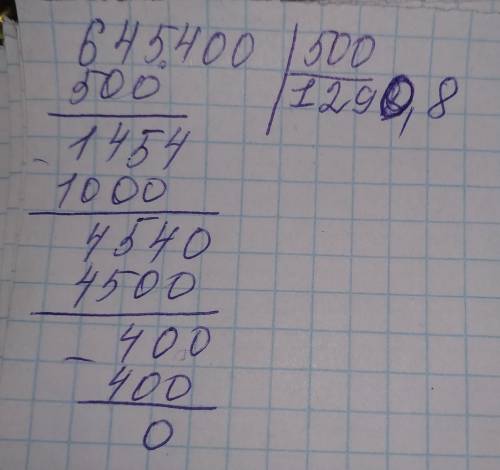 645400 | 500
500 1290,8
- 1454
1000
4540
4500
- 400
400
0